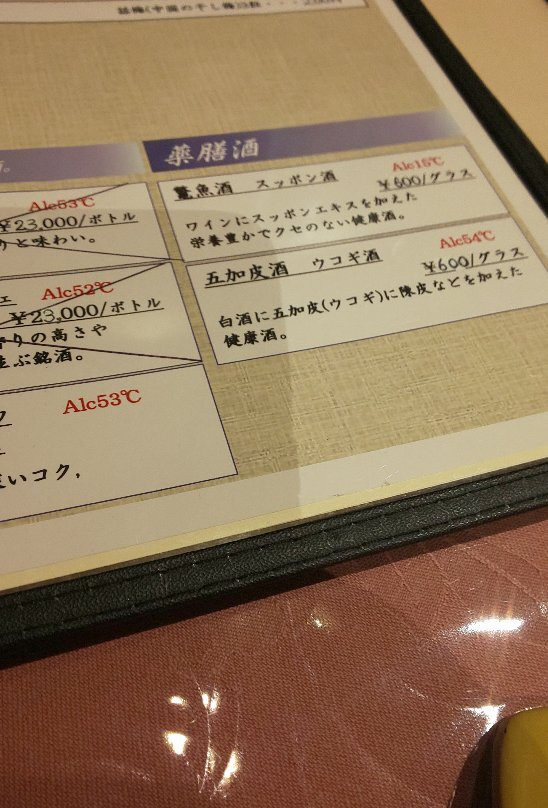 話梅(中国の干し梅)
薬膳酒
鼈魚酒 スッポン酒
Alc15℃
¥600/グラス
ワインにスッポンエキスを加えた
栄養豊かでクセのない健康酒。
五加皮酒 ウコギ酒
Alc54℃
¥600/グラス
白酒に五加皮(ウコギ)に陳皮などを加えた
健康酒。
Alc53℃
¥23,000/ボトル
りと味わい。
Alc52℃
¥23,000/ボトル
りの高さや
並ぶ銘酒。
Alc53℃
いコク,